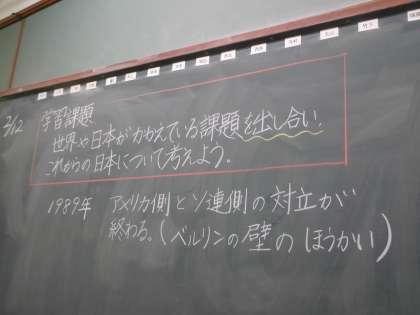 2/12
学習課題
世界や日本がかかえている課題を出し合い、
これからの日本について考えよう。
1989年 アメリカ側とソ連側の対立が
終わる。(ベルリンの壁のほうかい)